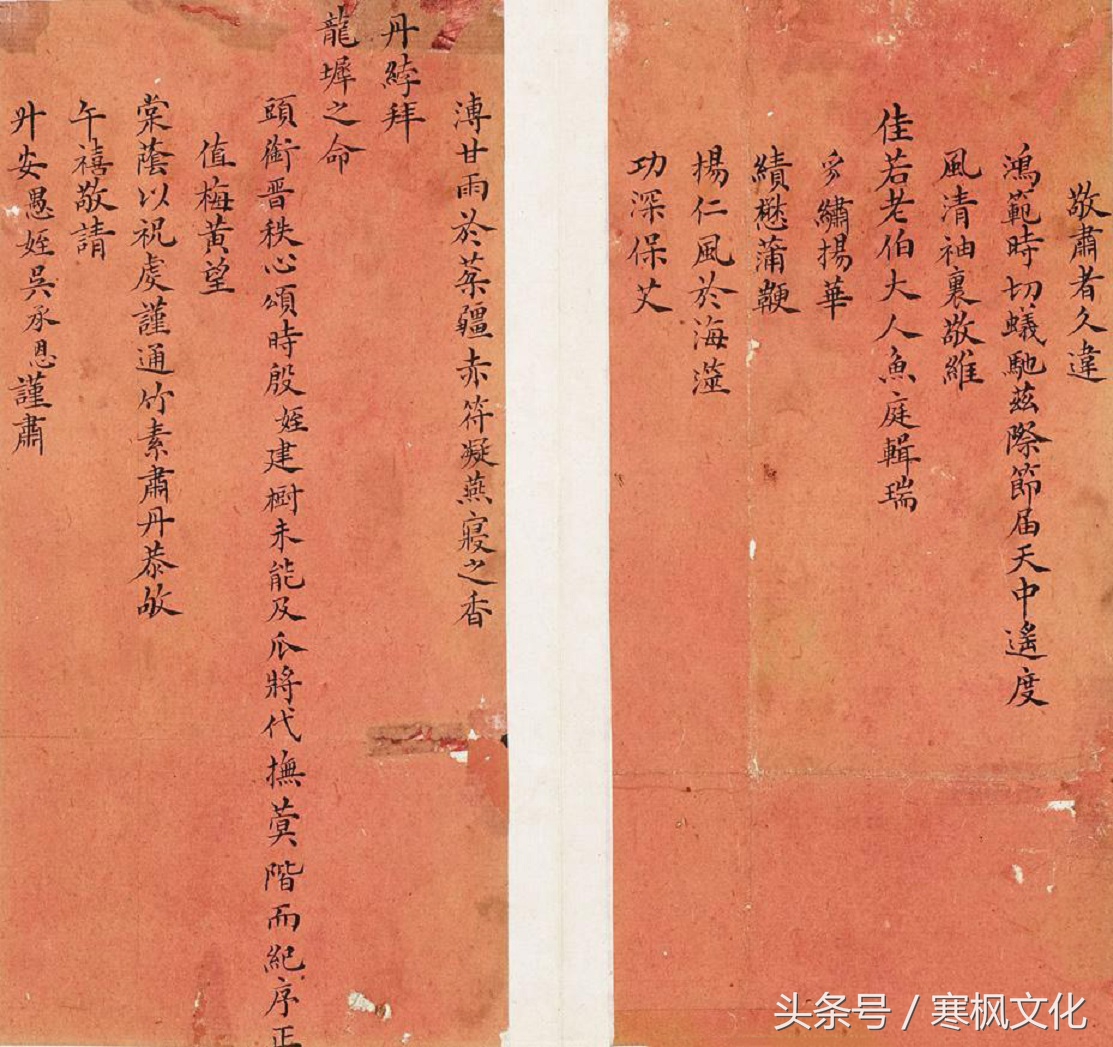 敬肅者久違
鴻範時切蟻馳茲際節届天中遙度
風清袖裏敬維
佳若老伯大人魚庭輯瑞
豸繡揚華
績懋蒲鞭
揚仁風於海澨
功深保艾
溥甘雨於棻疆赤符凝燕寢之香
丹綍拜
龍墀之命
頭銜晋秩心頌時殷姪建樹未能及瓜將代撫蓂階而紀序正
值梅黃望
棠蔭以祝虔謹通竹素肅丹恭敂
午禧敬請
升安愚姪吳承恩謹肅
头条号 / 寒枫文化